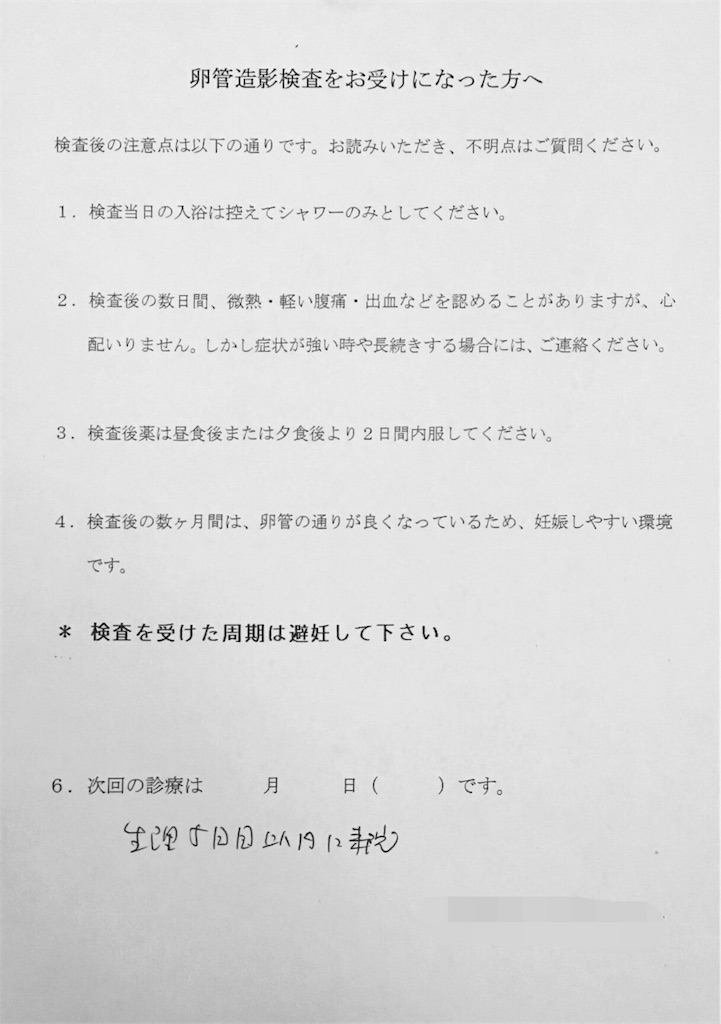 卵管造影検査をお受けになった方へ
検査後の注意点は以下の通りです。お読みいただき、不明点はご質問ください。
１．検査当日の入浴は控えてシャワーのみとしてください。
２．検査後の数日間、微熱・軽い腹痛・出血などを認めることがありますが、心
配いりません。しかし症状が強い時や長続きする場合には、ご連絡ください。
３．検査後薬は昼食後または夕食後より２日間内服してください。
４．検査後の数ヶ月間は、卵管の通りが良くなっているため、妊娠しやすい環境
です。
＊ 検査を受けた周期は避妊して下さい。
６．次回の診療は　　月　　日（　　）です。
生理5日目以内に来院